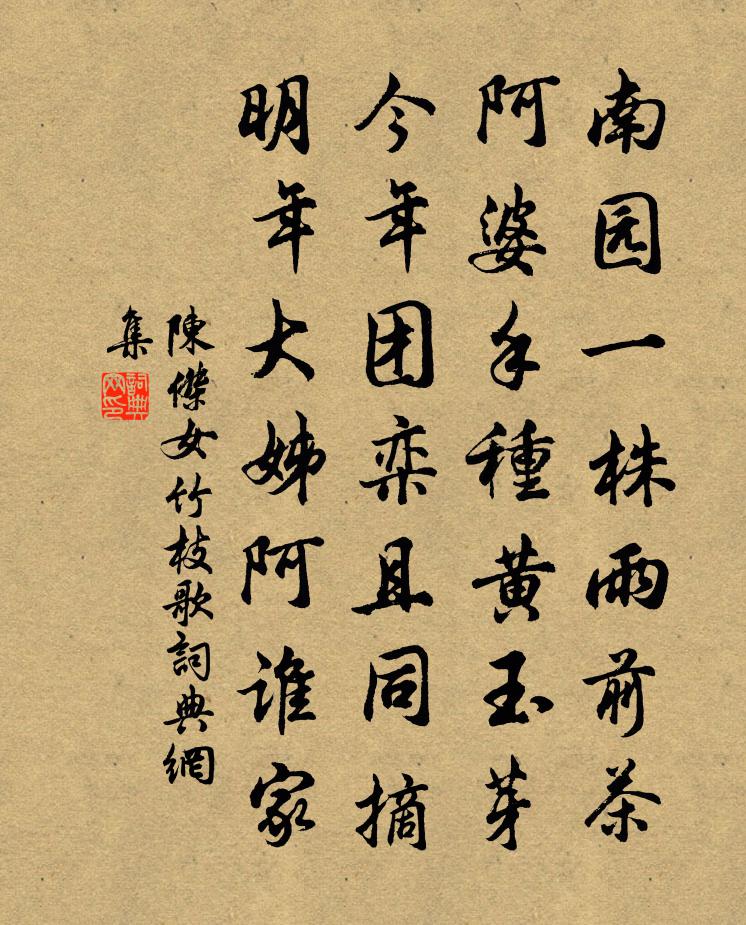 南园一株雨前茶
阿婆手種黄玉芽
今年团栾且同摘
明年大姊阿谁家
陳傑女竹枝歌詞典網
集
詞典網印